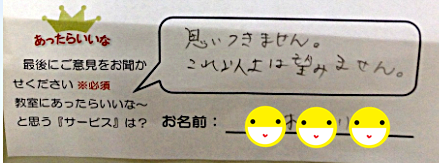 あったらいいな
最後にご意見をお聞か
せください ※必須
教室にあったらいいな〜
と思う『サービス』は?
思いつきません。
これ以上は望みません。
お名前: